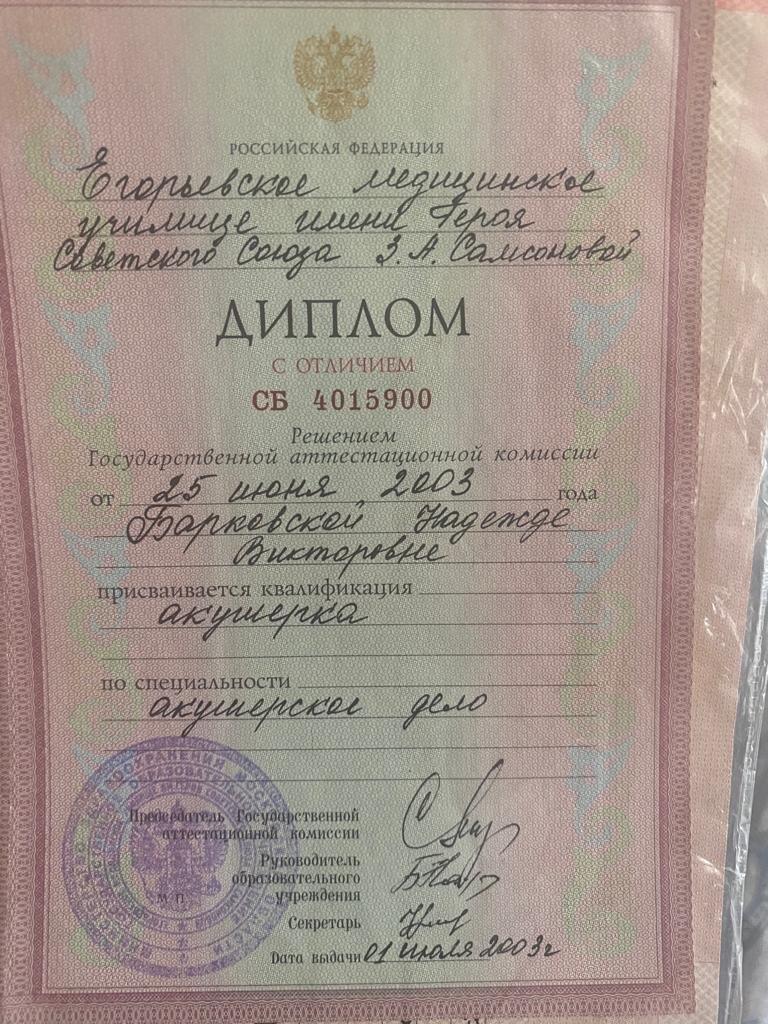 РОССИЙСКАЯ ФЕДЕРАЦИЯ
Егорьевское медицинское
училище имени Героя
Советского Союза З.А. Самсоновой
ДИПЛОМ
С ОТЛИЧИЕМ
СБ 4015900
Решением
Государственной аттестационной комиссии
от 25 июня 2003 года
Барковской Надежде
Викторовне
присваивается квалификация
акушерка
по специальности
акушерское дело
Председатель Государственной
аттестационной комиссии
Руководитель
образовательного
учреждения
М П
Секретарь
Дата выдачи 01 июля 2003г